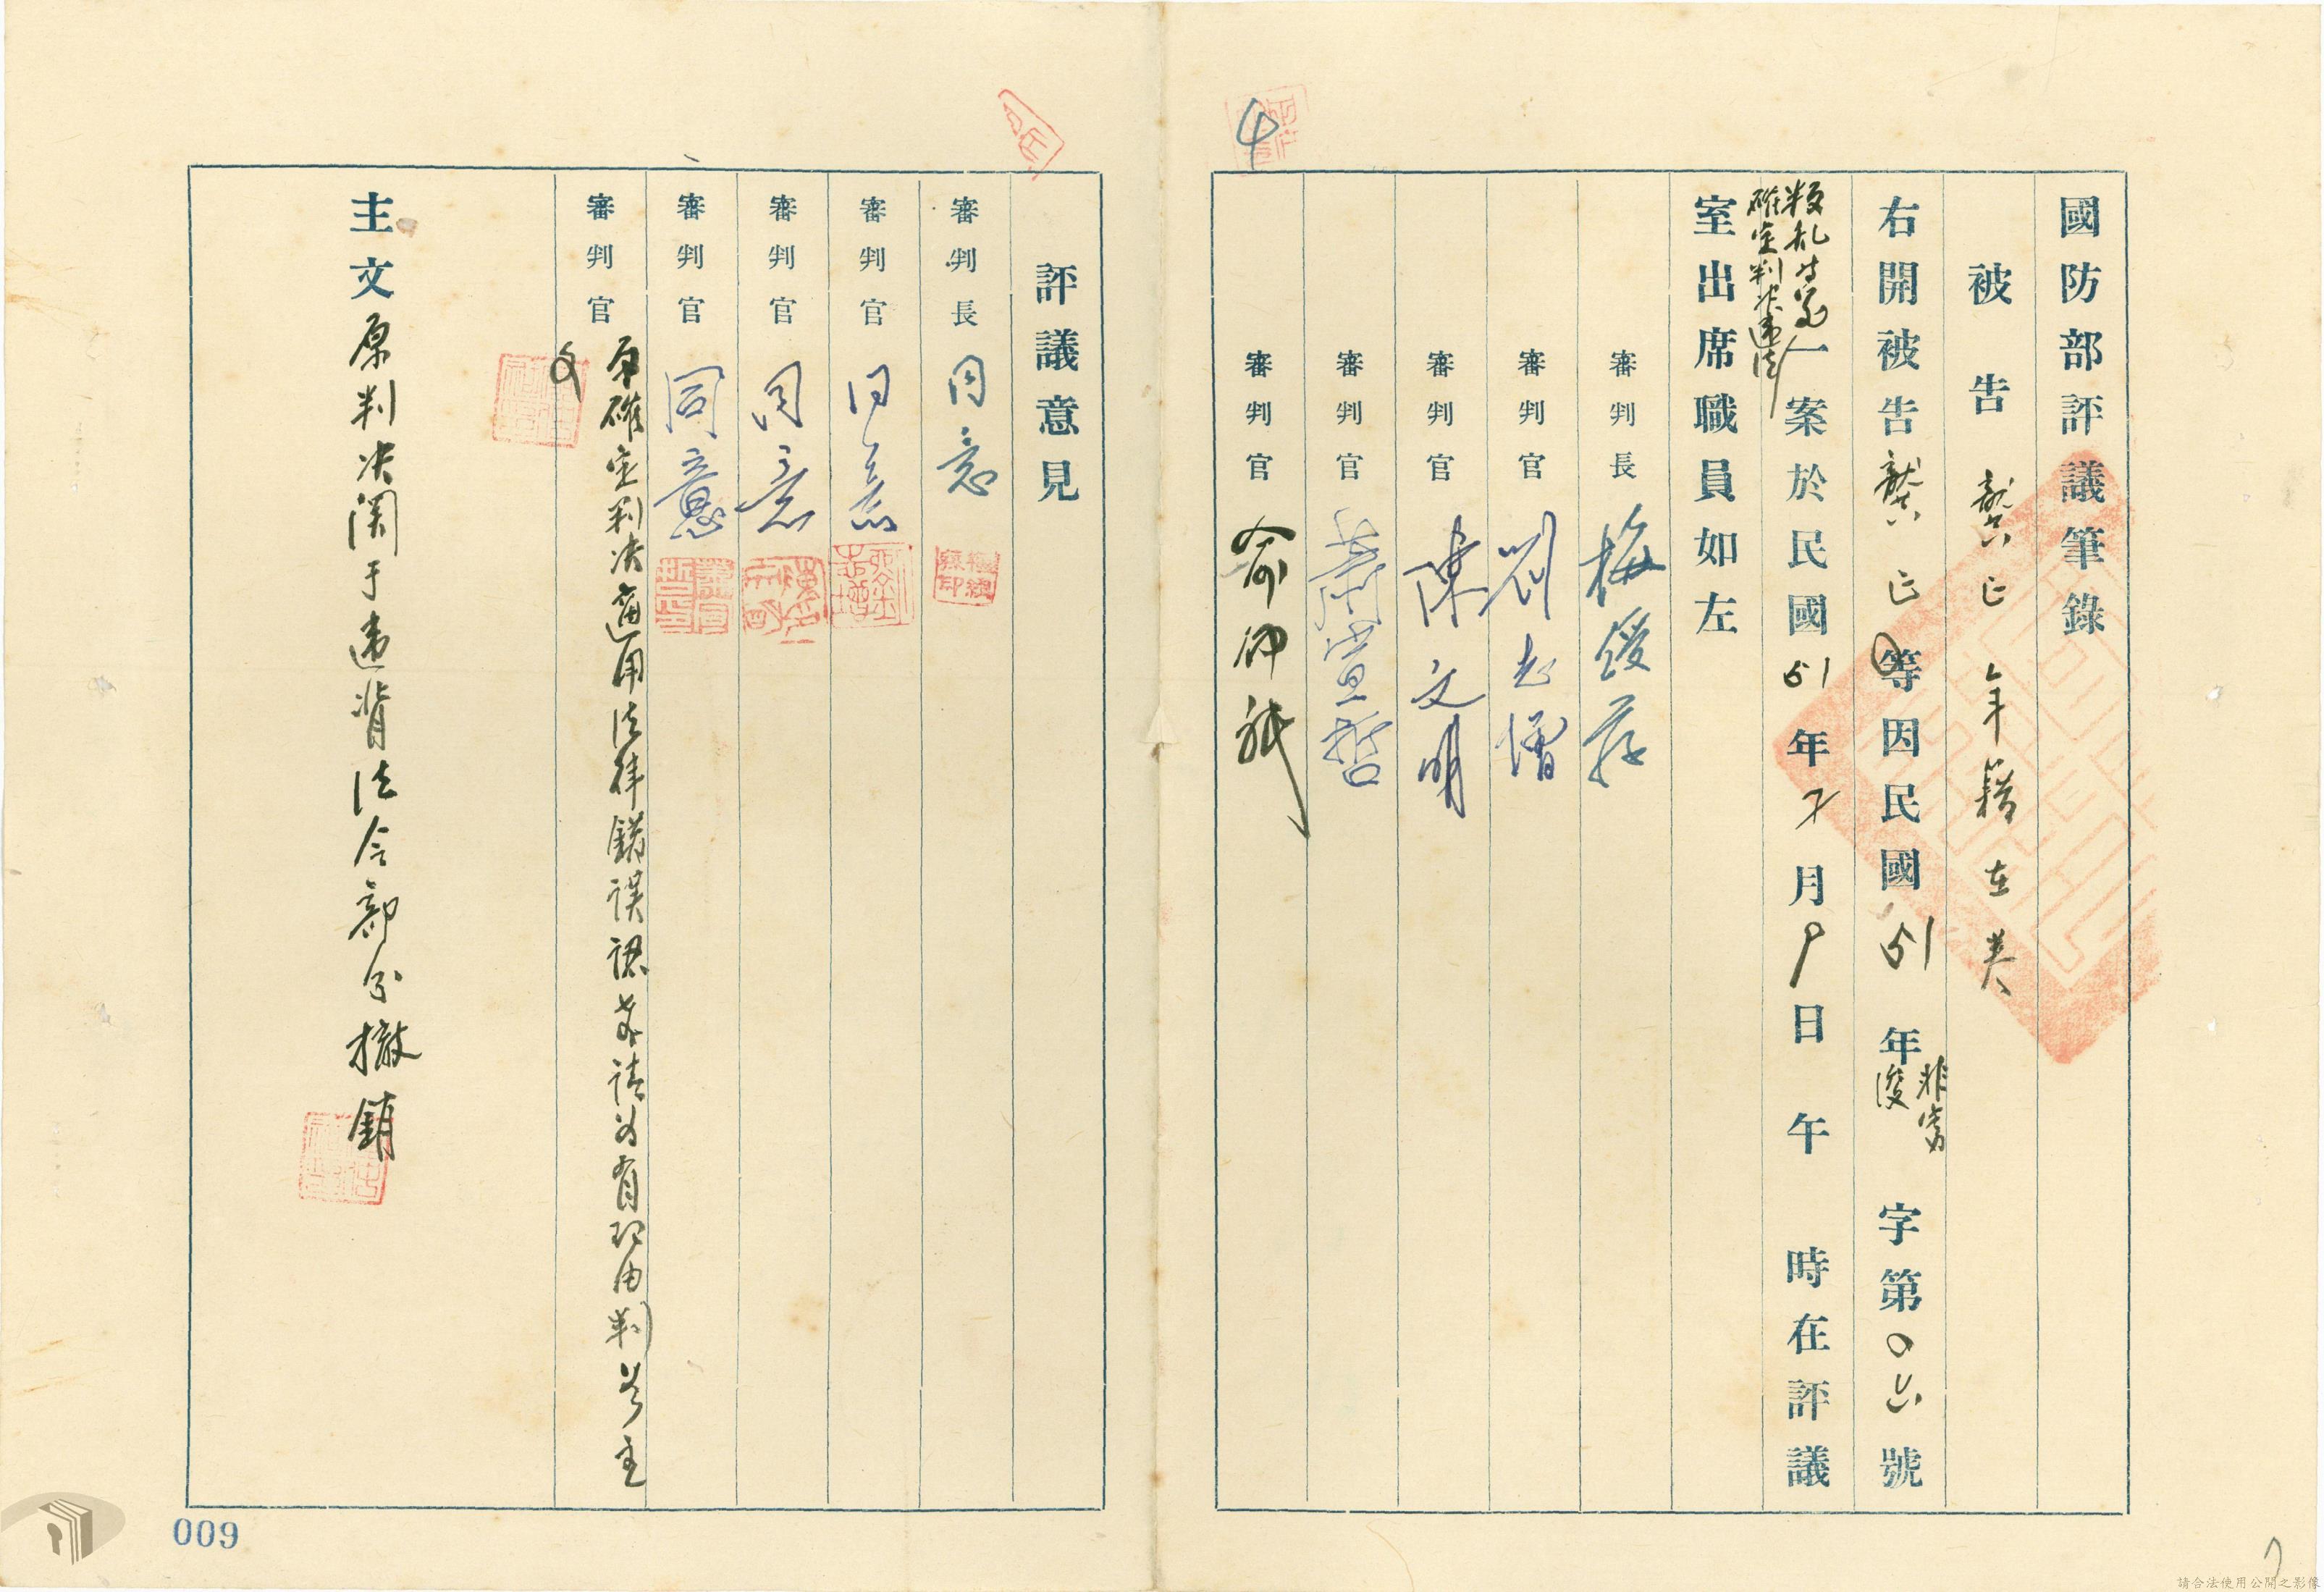 國防部評議筆錄
被告 龔 年籍在
右開被告龔 等因民國51年非字第號
叛乱 確定判決違法一案於民國51年 月 日 午 時在評議
室出席職員如左
審判長 梅綬蓀
審判官 劉志增
審判官 陳文明
審判官 蕭宣哲
審判官 俞
4
評議意見
審判長 同意
審判官 同意
審判官 同意
審判官 同意
審判官 原確定判決適用法律錯誤 請為有理由判 主
文
主文 原判决関于違背法令部分撤銷
009
請合法使用公開之影像